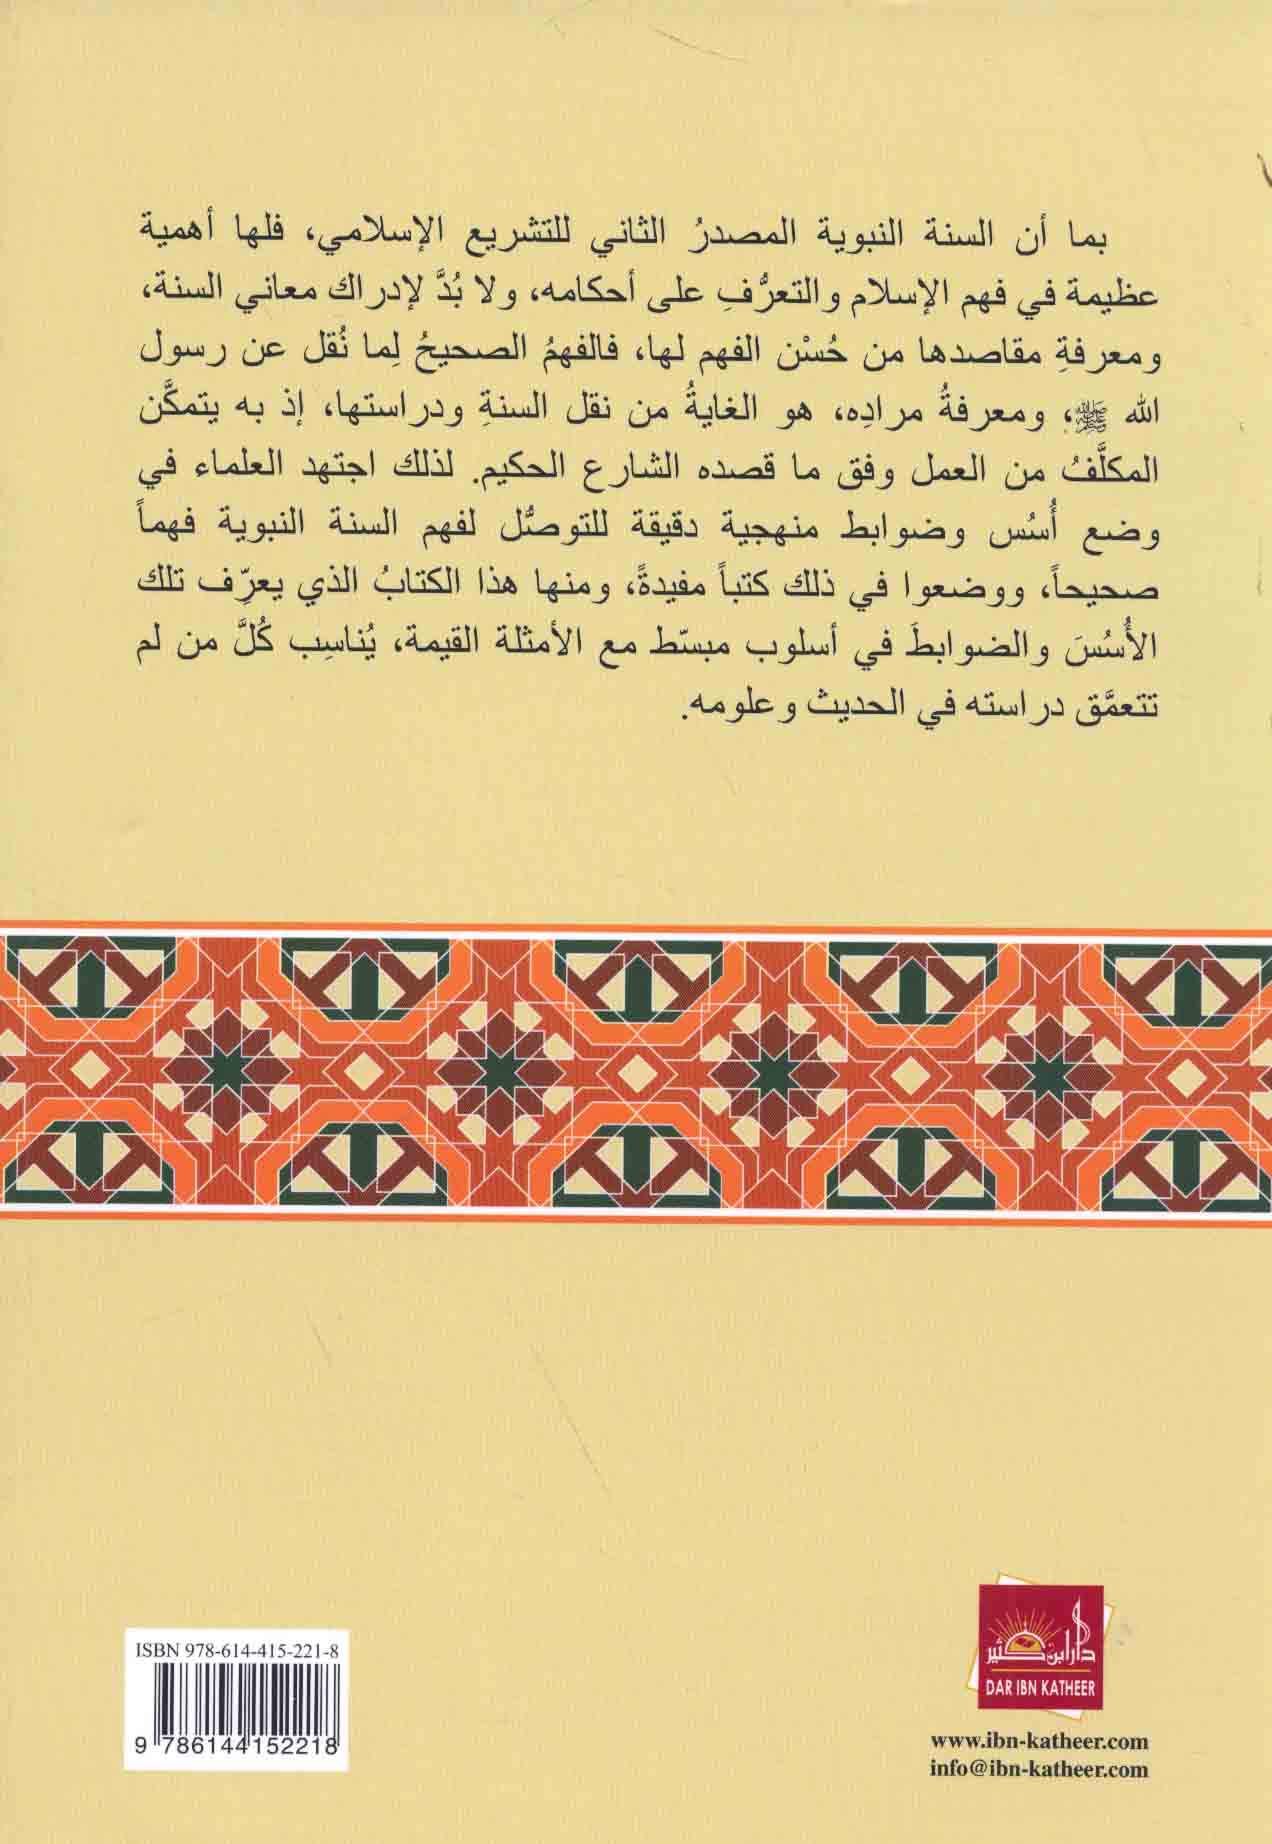 بما أن السنة النبوية المصدرُ الثاني للتشريع الإسلامي، فلها أهمية
عظيمة في فهم الإسلام والتعرُّفِ على أحكامه، ولا بُدَّ لإدراك معاني السنة،
ومعرفةِ مقاصدها من حُسْن الفهم لها، فالفهمُ الصحيحُ لِما نُقل عن رسول
الله ﷺ، ومعرفةُ مرادِه، هو الغايةُ من نقل السنةِ ودراستها، إذ به يتمكَّن
المكلَّفُ من العمل وفق ما قصده الشارع الحكيم. لذلك اجتهد العلماء في
وضع أُسُس وضوابط منهجية دقيقة للتوصُّل لفهم السنة النبوية فهماً
صحيحاً، ووضعوا في ذلك كتباً مفيدةً، ومنها هذا الكتابُ الذي يعرِّف تلك
الأُسُسَ والضوابطَ في أسلوب مبسّط مع الأمثلة القيمة، يُناسِب كُلَّ من لم
تتعمَّق دراسته في الحديث وعلومه.
ISBN 978-614-415-221-8
9 786144 152218
دار ابن كثير
DAR IBN KATHEER
www.ibn-katheer.com
info@ibn-katheer.com